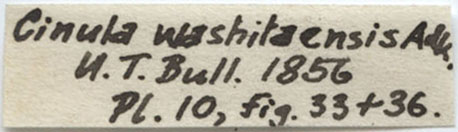 Cinula washitaensis Adk.
U.T. Bull. 1856
Pl. 10, fig. 33+36.